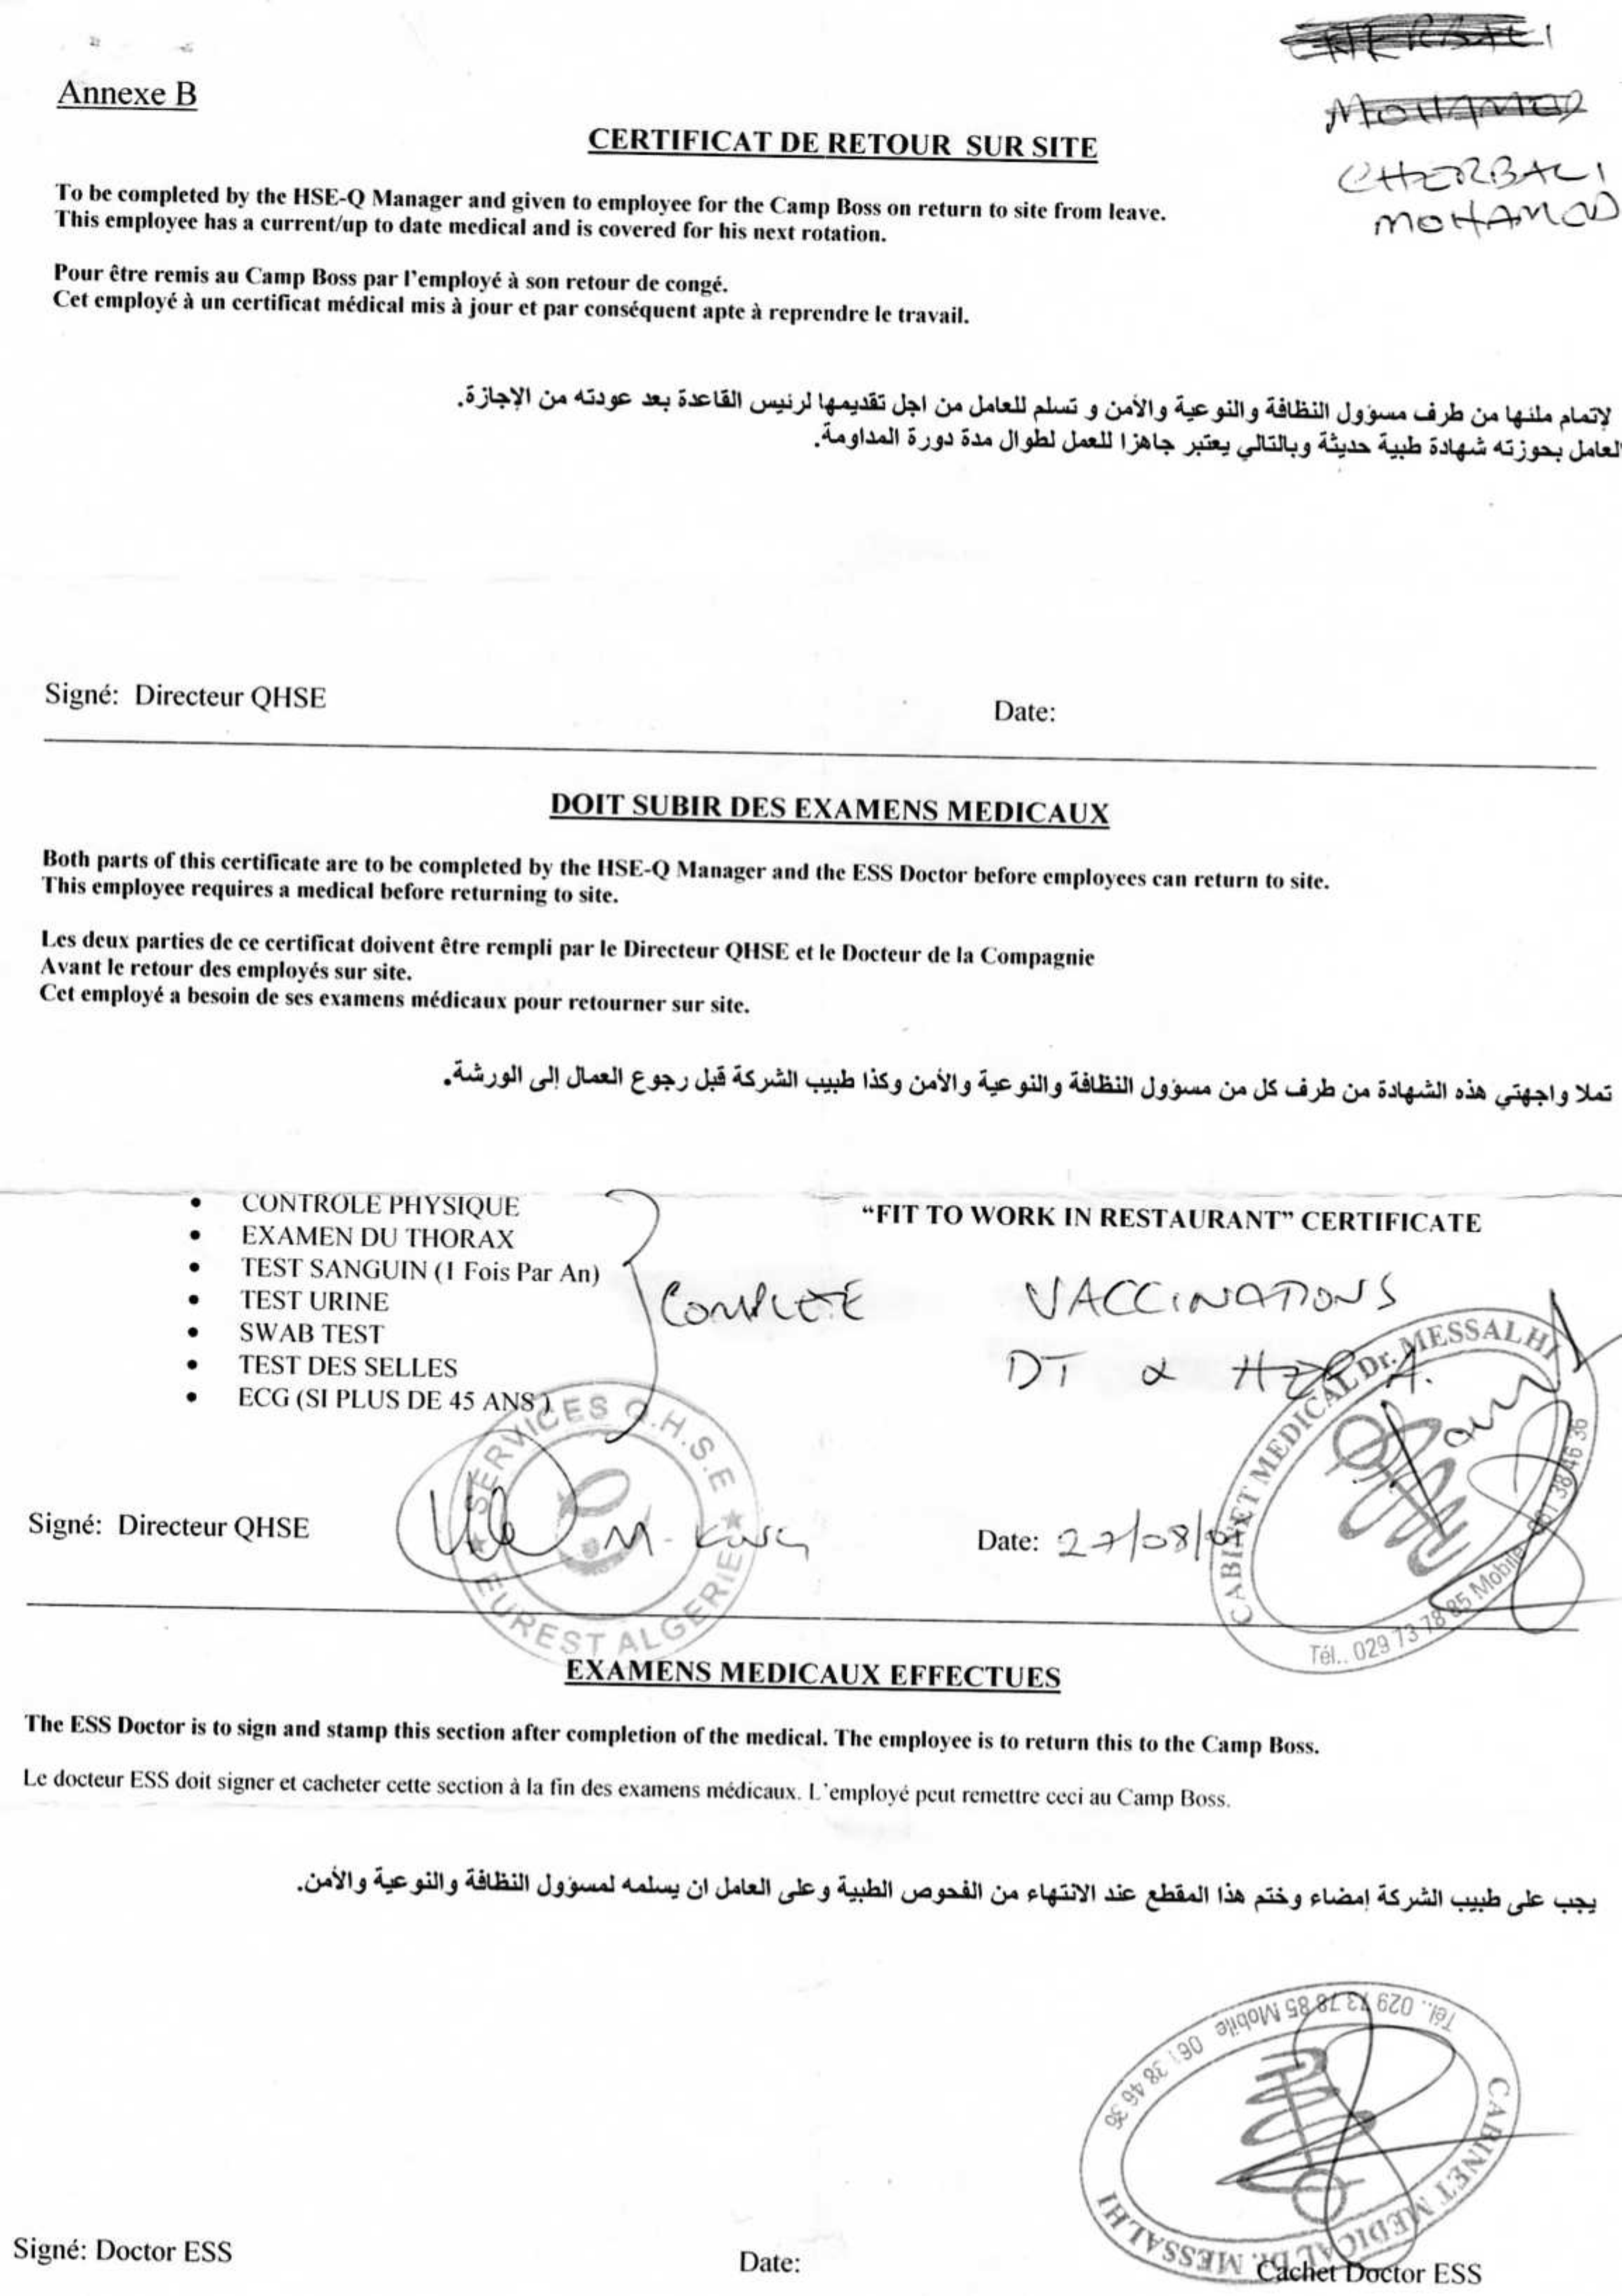 Annexe B
CHERBALI
MOHAMED
CHERBALI
MOHAMED
CERTIFICAT DE RETOUR SUR SITE
To be completed by the HSE-Q Manager and given to employee for the Camp Boss on return to site from leave.
This employee has a current/up to date medical and is covered for his next rotation.
Pour être remis au Camp Boss par l'employé à son retour de congé.
Cet employé à un certificat médical mis à jour et par conséquent apte à reprendre le travail.
لإتمام ملئها من طرف مسؤول النظافة والنوعية والأمن و تسلم للعامل من اجل تقديمها لرئيس القاعدة بعد عودته من الإجازة.
العامل بحوزته شهادة طبية حديثة وبالتالي يعتبر جاهزا للعمل لطوال مدة دورة المداومة.
Signé: Directeur QHSE
Date:
DOIT SUBIR DES EXAMENS MEDICAUX
Both parts of this certificate are to be completed by the HSE-Q Manager and the ESS Doctor before employees can return to site.
This employee requires a medical before returning to site.
Les deux parties de ce certificat doivent être rempli par le Directeur QHSE et le Docteur de la Compagnie
Avant le retour des employés sur site.
Cet employé a besoin de ses examens médicaux pour retourner sur site.
تملا واجهتي هذه الشهادة من طرف كل من مسؤول النظافة والنوعية والأمن وكذا طبيب الشركة قبل رجوع العمال إلى الورشة.
• CONTROLE PHYSIQUE
• EXAMEN DU THORAX
• TEST SANGUIN (1 Fois Par An)
• TEST URINE
• SWAB TEST
• TEST DES SELLES
• ECG (SI PLUS DE 45 ANS)
COMPLETE
"FIT TO WORK IN RESTAURANT" CERTIFICATE
VACCINATIONS
DT & HEP A.
SERVICES Q.H.S.E
EUREST ALGERIE
CABINET MEDICAL Dr. MESSALHI
Tél.. 029 73 78 85 Mobile 061 38 46 36
Signé: Directeur QHSE
M.
Date: 27/08/
EXAMENS MEDICAUX EFFECTUES
The ESS Doctor is to sign and stamp this section after completion of the medical. The employee is to return this to the Camp Boss.
Le docteur ESS doit signer et cacheter cette section à la fin des examens médicaux. L'employé peut remettre ceci au Camp Boss.
يجب على طبيب الشركة إمضاء وختم هذا المقطع عند الانتهاء من الفحوص الطبية وعلى العامل ان يسلمه لمسؤول النظافة والنوعية والأمن.
Tél.. 029 73 78 85 Mobile 061 38 46 36
CABINET MEDICAL Dr. MESSALHI
Signé: Doctor ESS
Date:
Cachet Doctor ESS